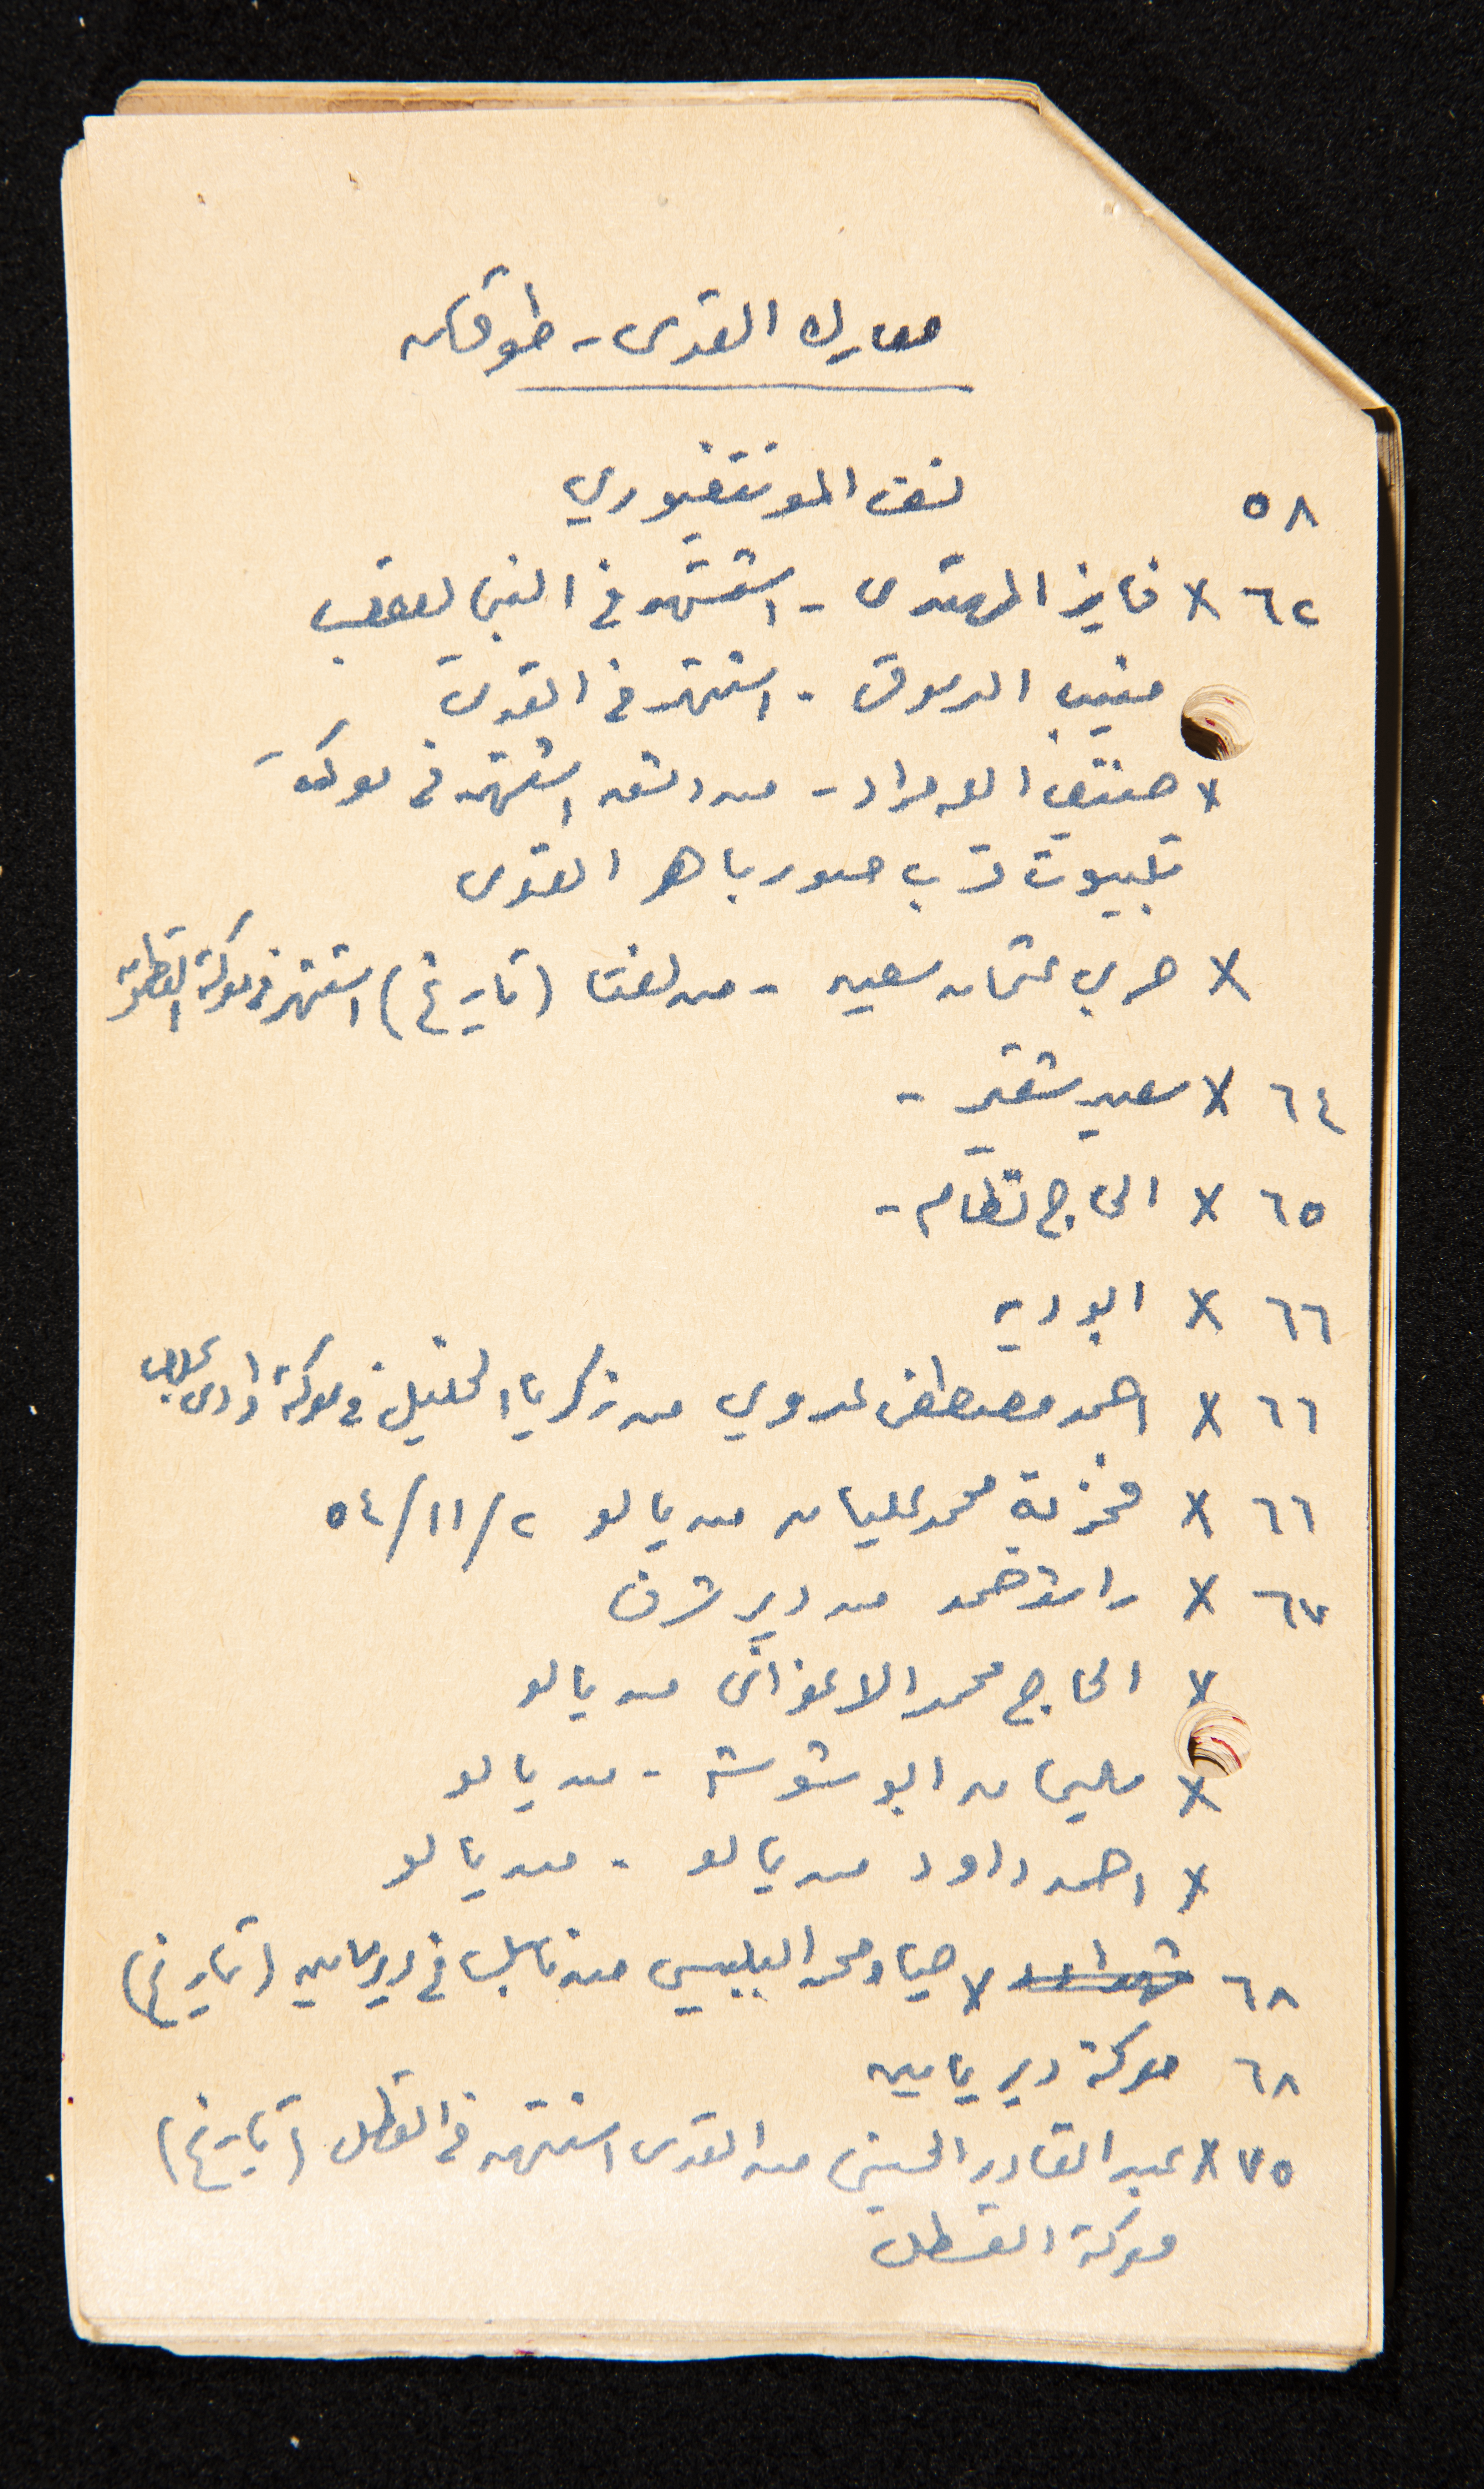 معارك القدس - طوقان
٥٨ نسف المونتفيوري
٦٢ × فايز المهتدى - استشهد في النبي يعقوب
منيب الدموق - استشهد في القدس
× حنفي ابو مراد - من دمشق استشهد في معركة
تلبيوت قرب صور باهر القدس
× حربي عثمان سعيد - من لفتا (تاريخ) استشهد في معركة القطمون
٦٤ × سعيد شقير -
٦٥ × الحاج نظام -
٦٦ × ابو ديه
٦٦ × احمد مصطفى عدوي من زكريا الخليل في معركة وادي
٦٦ × فخرية محمد عليان من يالو ٥٤/١١/٢
٦٧ × راشد حمد من دير شرف
× الحاج محمد الاعواني من يالو
× سليمان ابو شوشة - من يالو
× احمد داود من يالو - من يالو
٦٨ شهداء × ضياء محمد البلبيسي من نابلس في دير يامين (تاريخ)
٦٨ معركة دير يامين
٧٥ × عبد القادر الحسيني من القدس استشهد في القسطل (تاريخ)
معركة القسطل